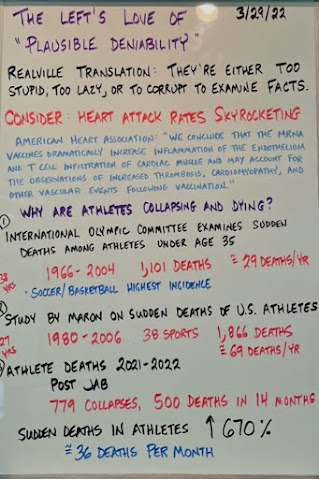 THE LEFT'S LOVE OF 3/29/22
"PLAUSIBLE DENIABILITY"
REALVILLE TRANSLATION: THEY'RE EITHER TOO
STUPID, TOO LAZY, OR TO CORRUPT TO EXAMINE FACTS.
CONSIDER: HEART ATTACK RATES SKYROCKETING
AMERICAN HEART ASSOCIATION: "WE CONCLUDE THAT THE MRNA
VACCINES DRAMATICALLY INCREASE INFLAMMATION OF THE ENDOTHELIUM
AND T CELL INFILTRATION OF CARDIAC MUSCLE AND MAY ACCOUNT FOR
THE OBSERVATIONS OF INCREASED THROMBOSIS, CARDIOMYOPATHY, AND
OTHER VASCULAR EVENTS FOLLOWING VACCINATION."
WHY ARE ATHLETES COLLAPSING AND DYING?
① INTERNATIONAL OLYMPIC COMMITTEE EXAMINES SUDDEN
DEATHS AMONG ATHLETES UNDER AGE 35
38 YRS 1966-2004 1,101 DEATHS ≅ 29 DEATHS/YR
• SOCCER/BASKETBALL HIGHEST INCIDENCE
② STUDY BY MARON ON SUDDEN DEATHS OF U.S. ATHLETES
27 YRS 1980-2006 38 SPORTS 1,866 DEATHS
≅ 69 DEATHS/YR
③ ATHLETE DEATHS 2021-2022
POST JAB
779 COLLAPSES, 500 DEATHS IN 14 MONTHS
SUDDEN DEATHS IN ATHLETES ↑ 670%
≅ 36 DEATHS PER MONTH